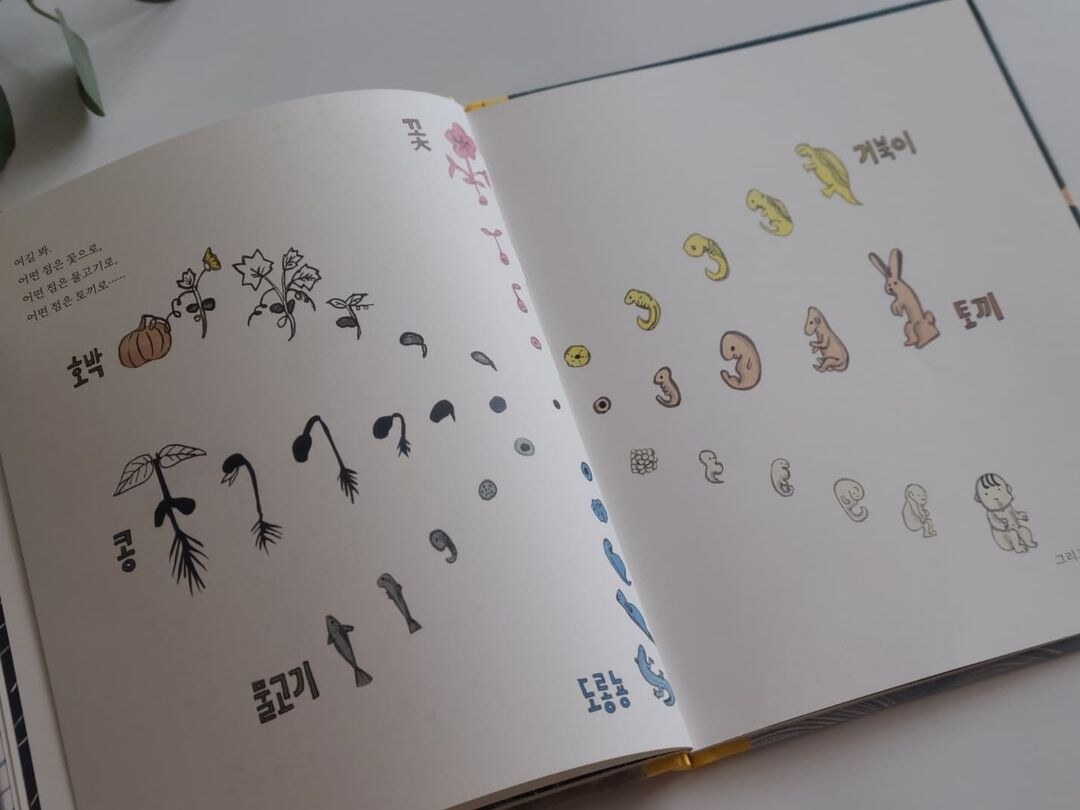 여길 봐.
어떤 점은 꽃으로,
어떤 점은 물고기로,
어떤 점은 토끼로……
꽃
호박
콩
물고기
도롱뇽
거북이
토끼